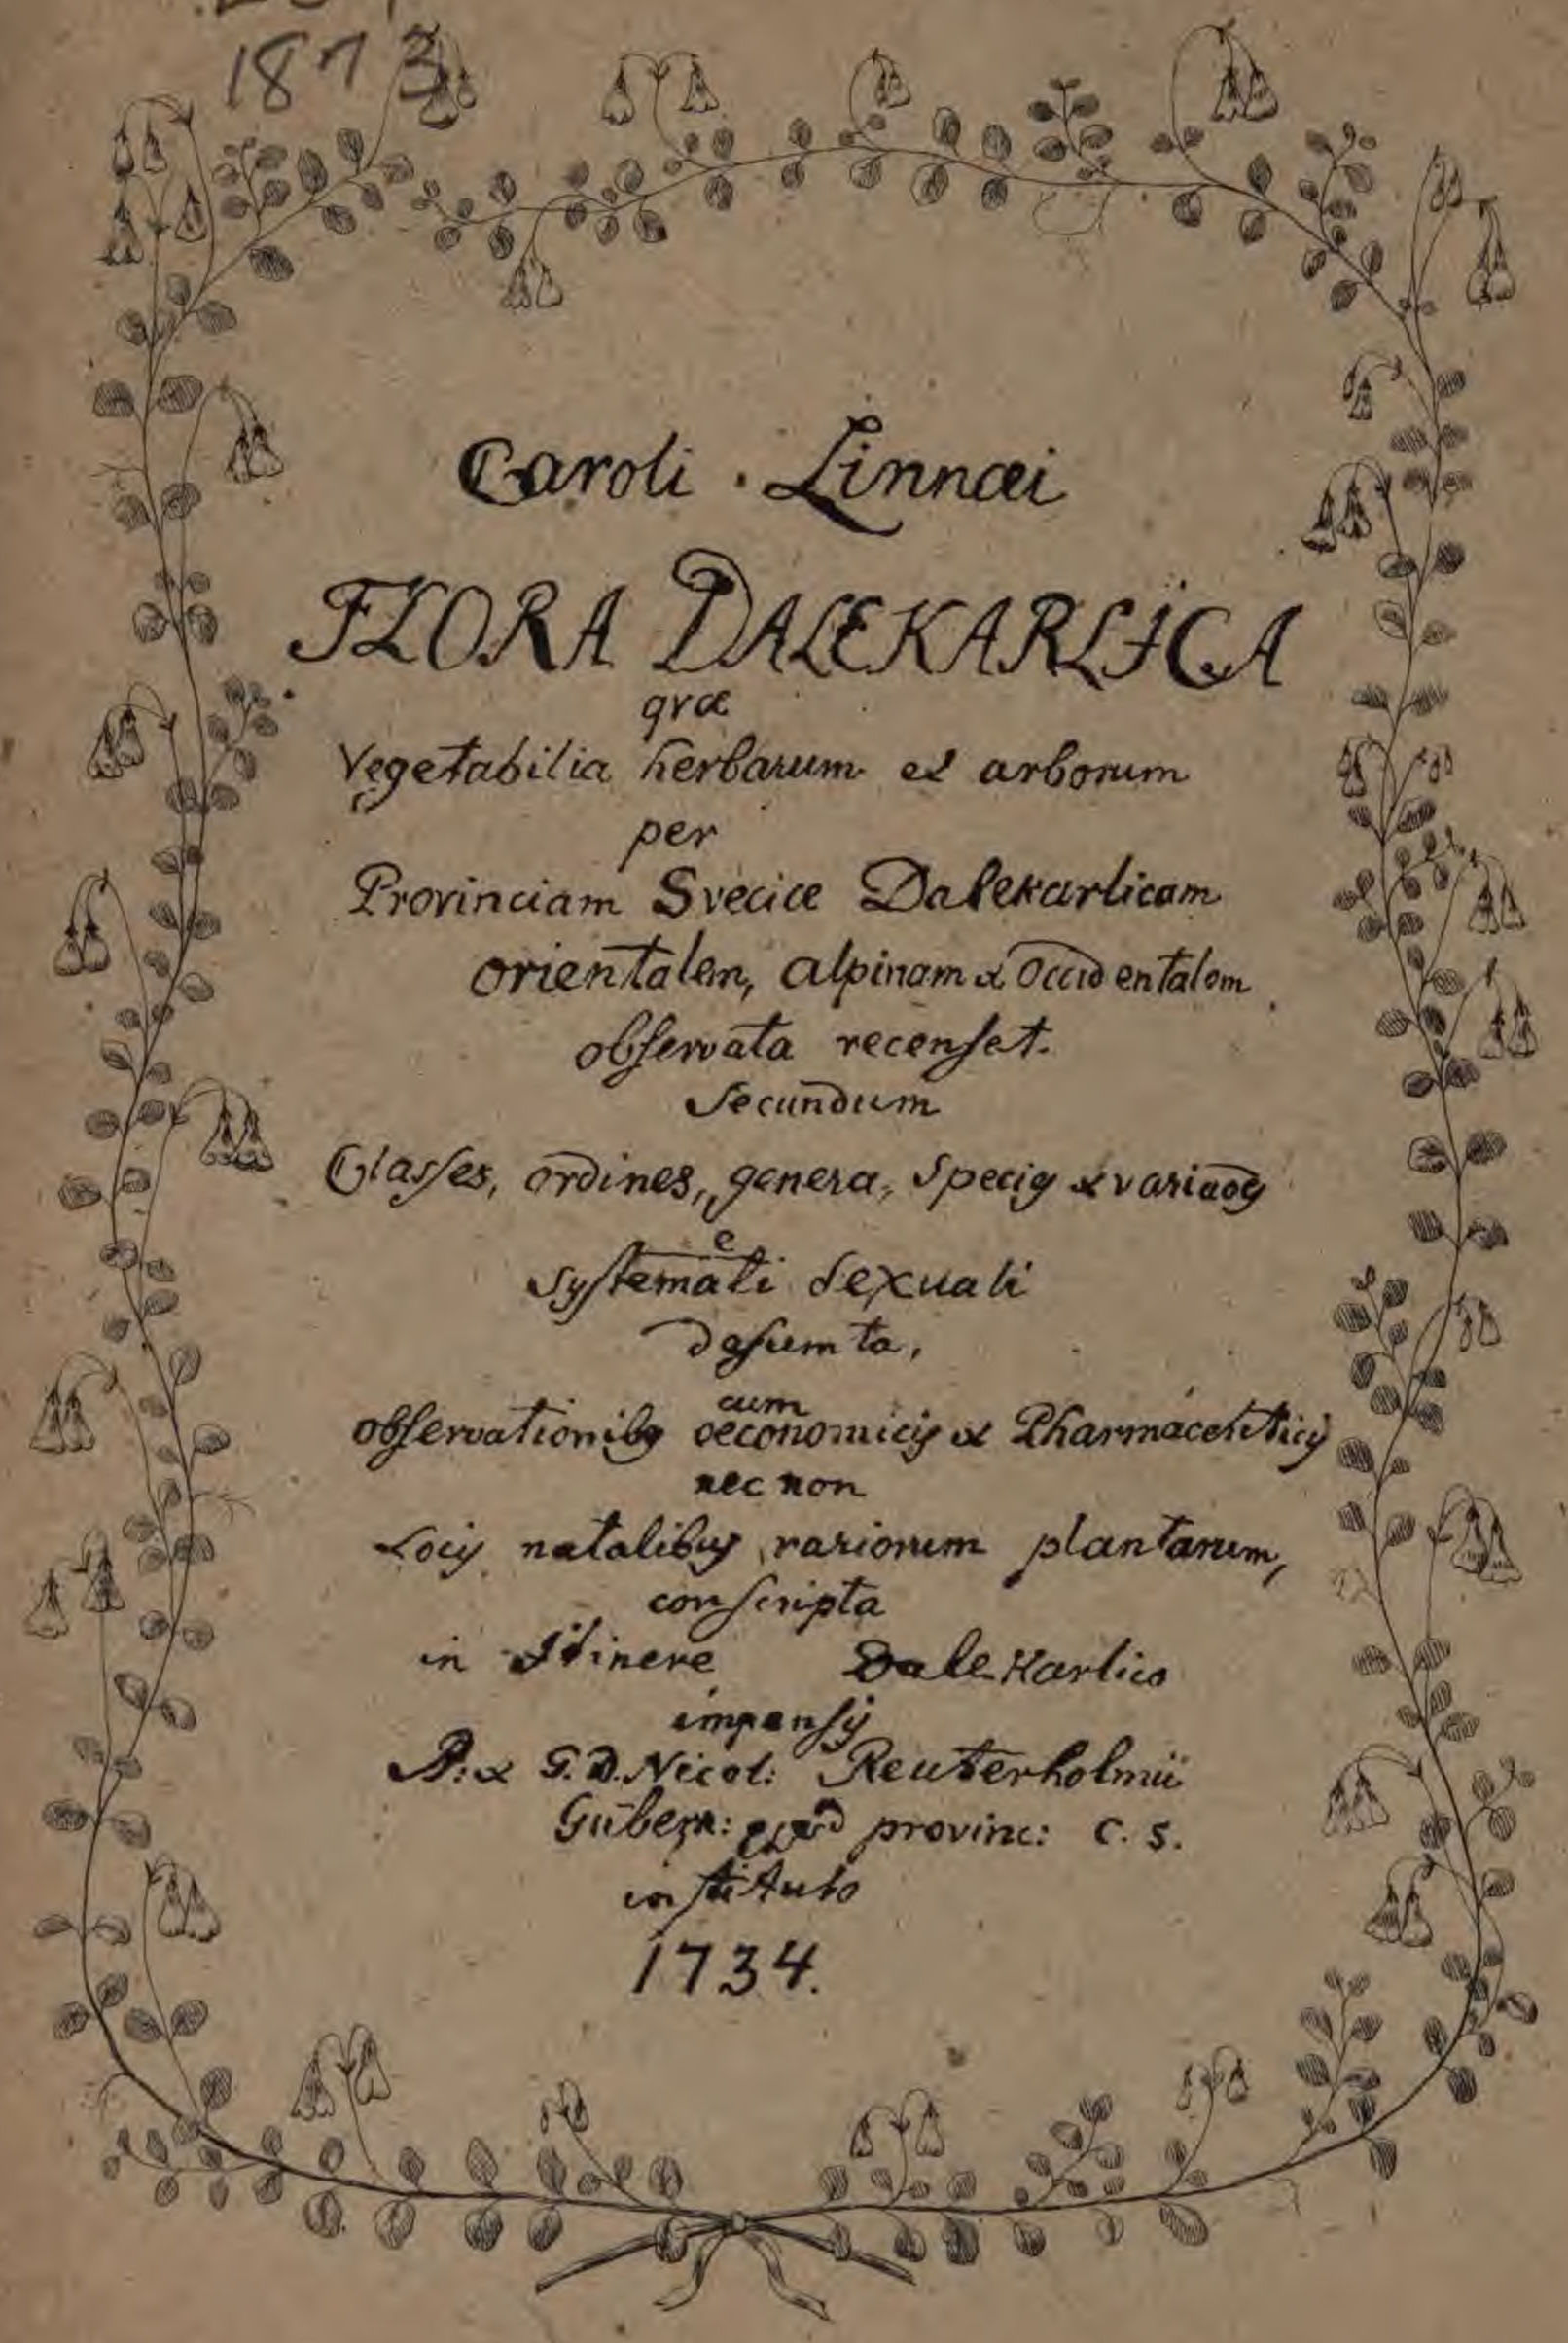 1873
Caroli . Linnæi
FLORA DALEKARLICA
qvæ
Vegetabilia herbarum et arborum
per
Provinciam Sveciæ Dalekarlicam
orientalem, alpinam & Occidentalem
obſervata recenſet.
Secundum
Claſses, ordines, genera, Species &
e
syſtemati Sexuali
deſumta,
cum
obſervationibꝫ oeconomicis & Pharmaceuticis
nec non
Locis natalibus rariorum plantarum,
conſcripta
in Itinere Dalekarlico
impenſis
P: & G. D. Nicol: Reuterholmii
Gubern: provinc: C. S.
inſtituto
1734.